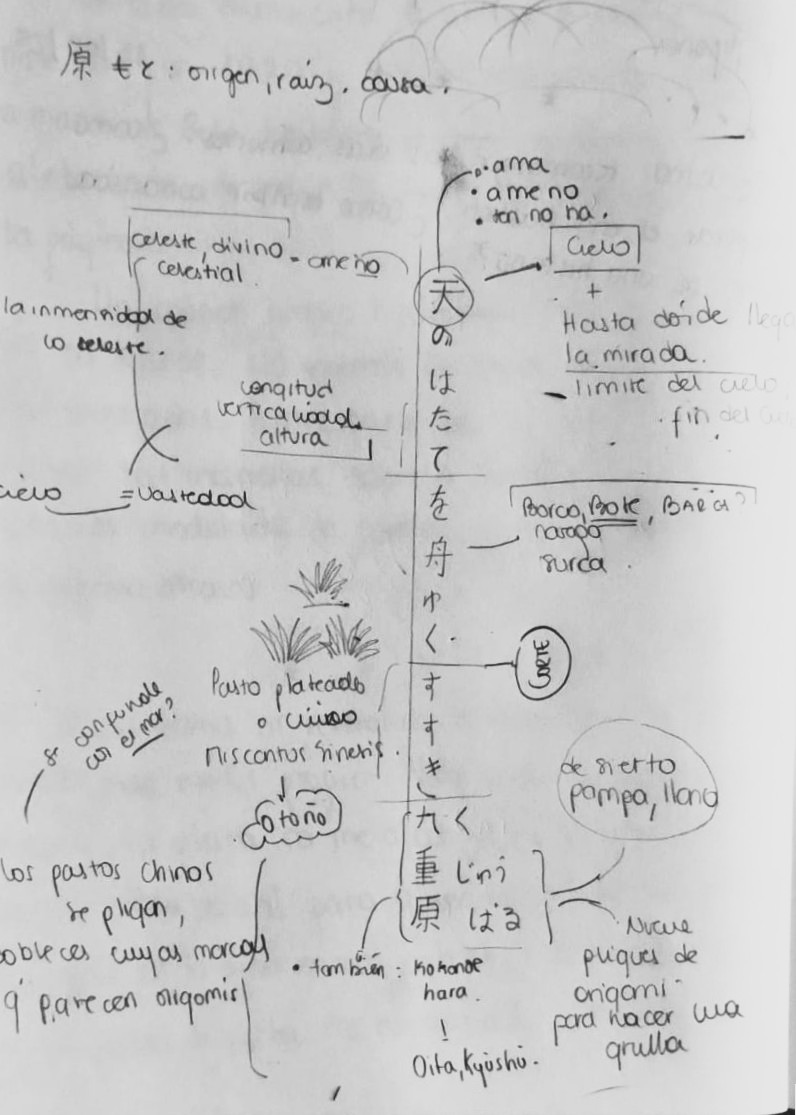 原 もと: origen, raíz. causa.
• ama
• ameno
• ten no ha.
Cielo
+
Hasta dónde llega
la mirada.
limite del cielo,
fin del
celeste, divino = ameno
celestial.
la inmensidad de
lo celeste.
longitud
verticalidad,
altura
cielo = vastedad
天のはたてを舟ゆくすすき
九重原
く
じゅう
ばる
Barco, Bote, BARCA?
navega
surca.
CORTE
Pasto plateado
o chino
Miscantus Sinensis.
se confunde
con el mar?
Otoño
desierto
pampa, llano
los pastos chinos
se pligan,
dobleces cuyas marcas
q' parecen origamis
• también: Kokonoe
hara.
Oita, Kyūshū.
Nueve
pliques de
origami
para hacer una
grulla